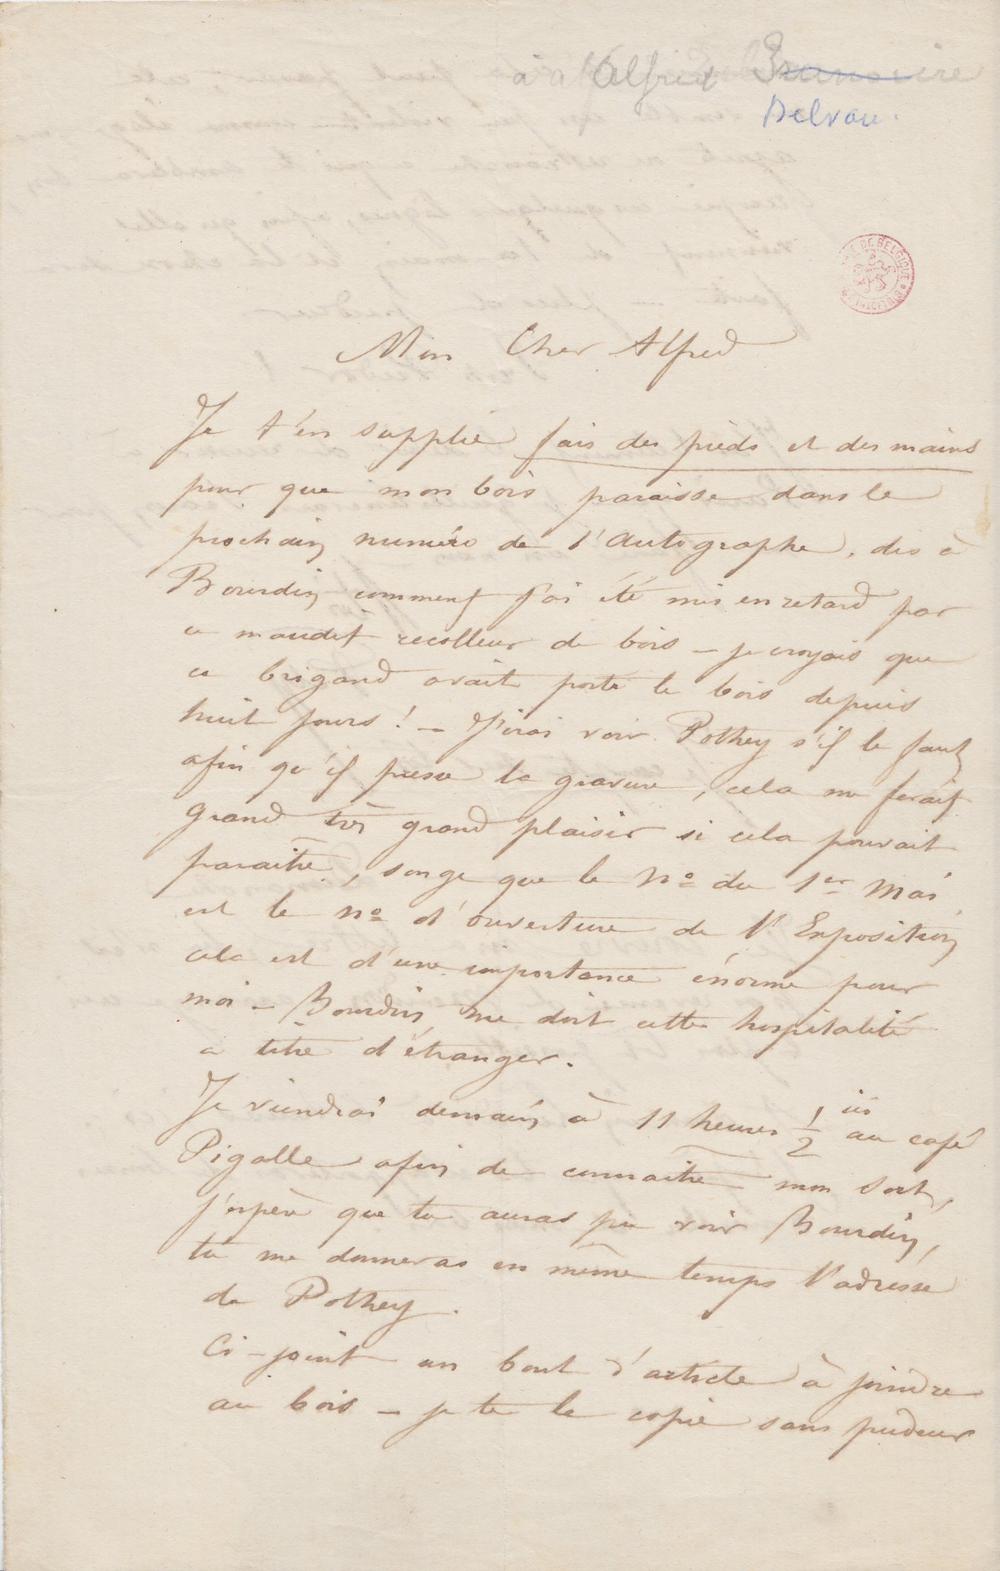 à Alfred
Delvau.
Mon Cher Alfred
Je t'en supplie fais des pieds et des mains
pour que mon bois paraisse dans le
prochain numéro de l'Autographe, dis à
Bourdin comment j'ai été mis en retard par
ce maudit recolleur de bois – je croyais que
ce brigand avait porté le bois depuis
huit jours ! – J'irai voir Pothey s'il le faut
afin qu'il presse la gravure, cela me ferait
grand très grand plaisir si cela pouvait
paraitre, songe que le No du 1er Mai
est le no d'ouverture de l'Exposition
cela est d'une importance énorme pour
moi – Bourdin me doit cette hospitalité
a titre d'étranger.
Je viendrai demain à 11 heures 1/2 au café
Pigalle afin de connaitre mon sort,
j'espère que tu auras pu voir Bourdin,
tu me donneras en même temps l'adresse
de Pothey.
Ci-joint un bout d'article à joindre
au bois – je te le copie sans pudeur